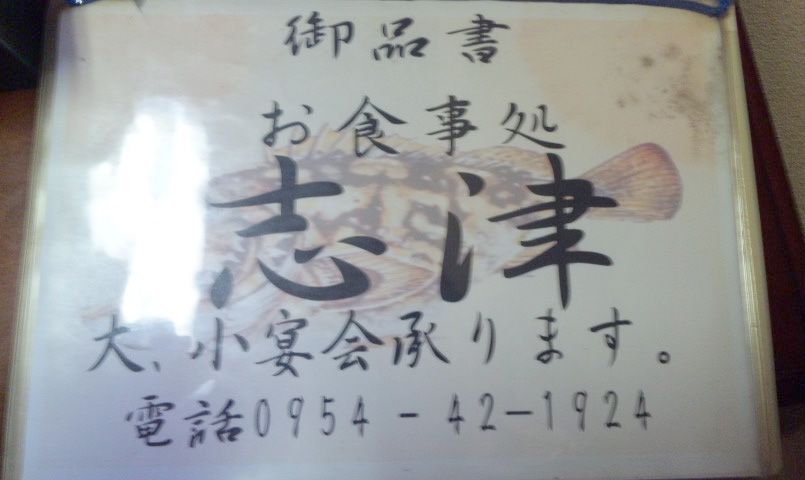 御品書
お食事処
志津
大、小宴会承ります。
電話0954-42-1924